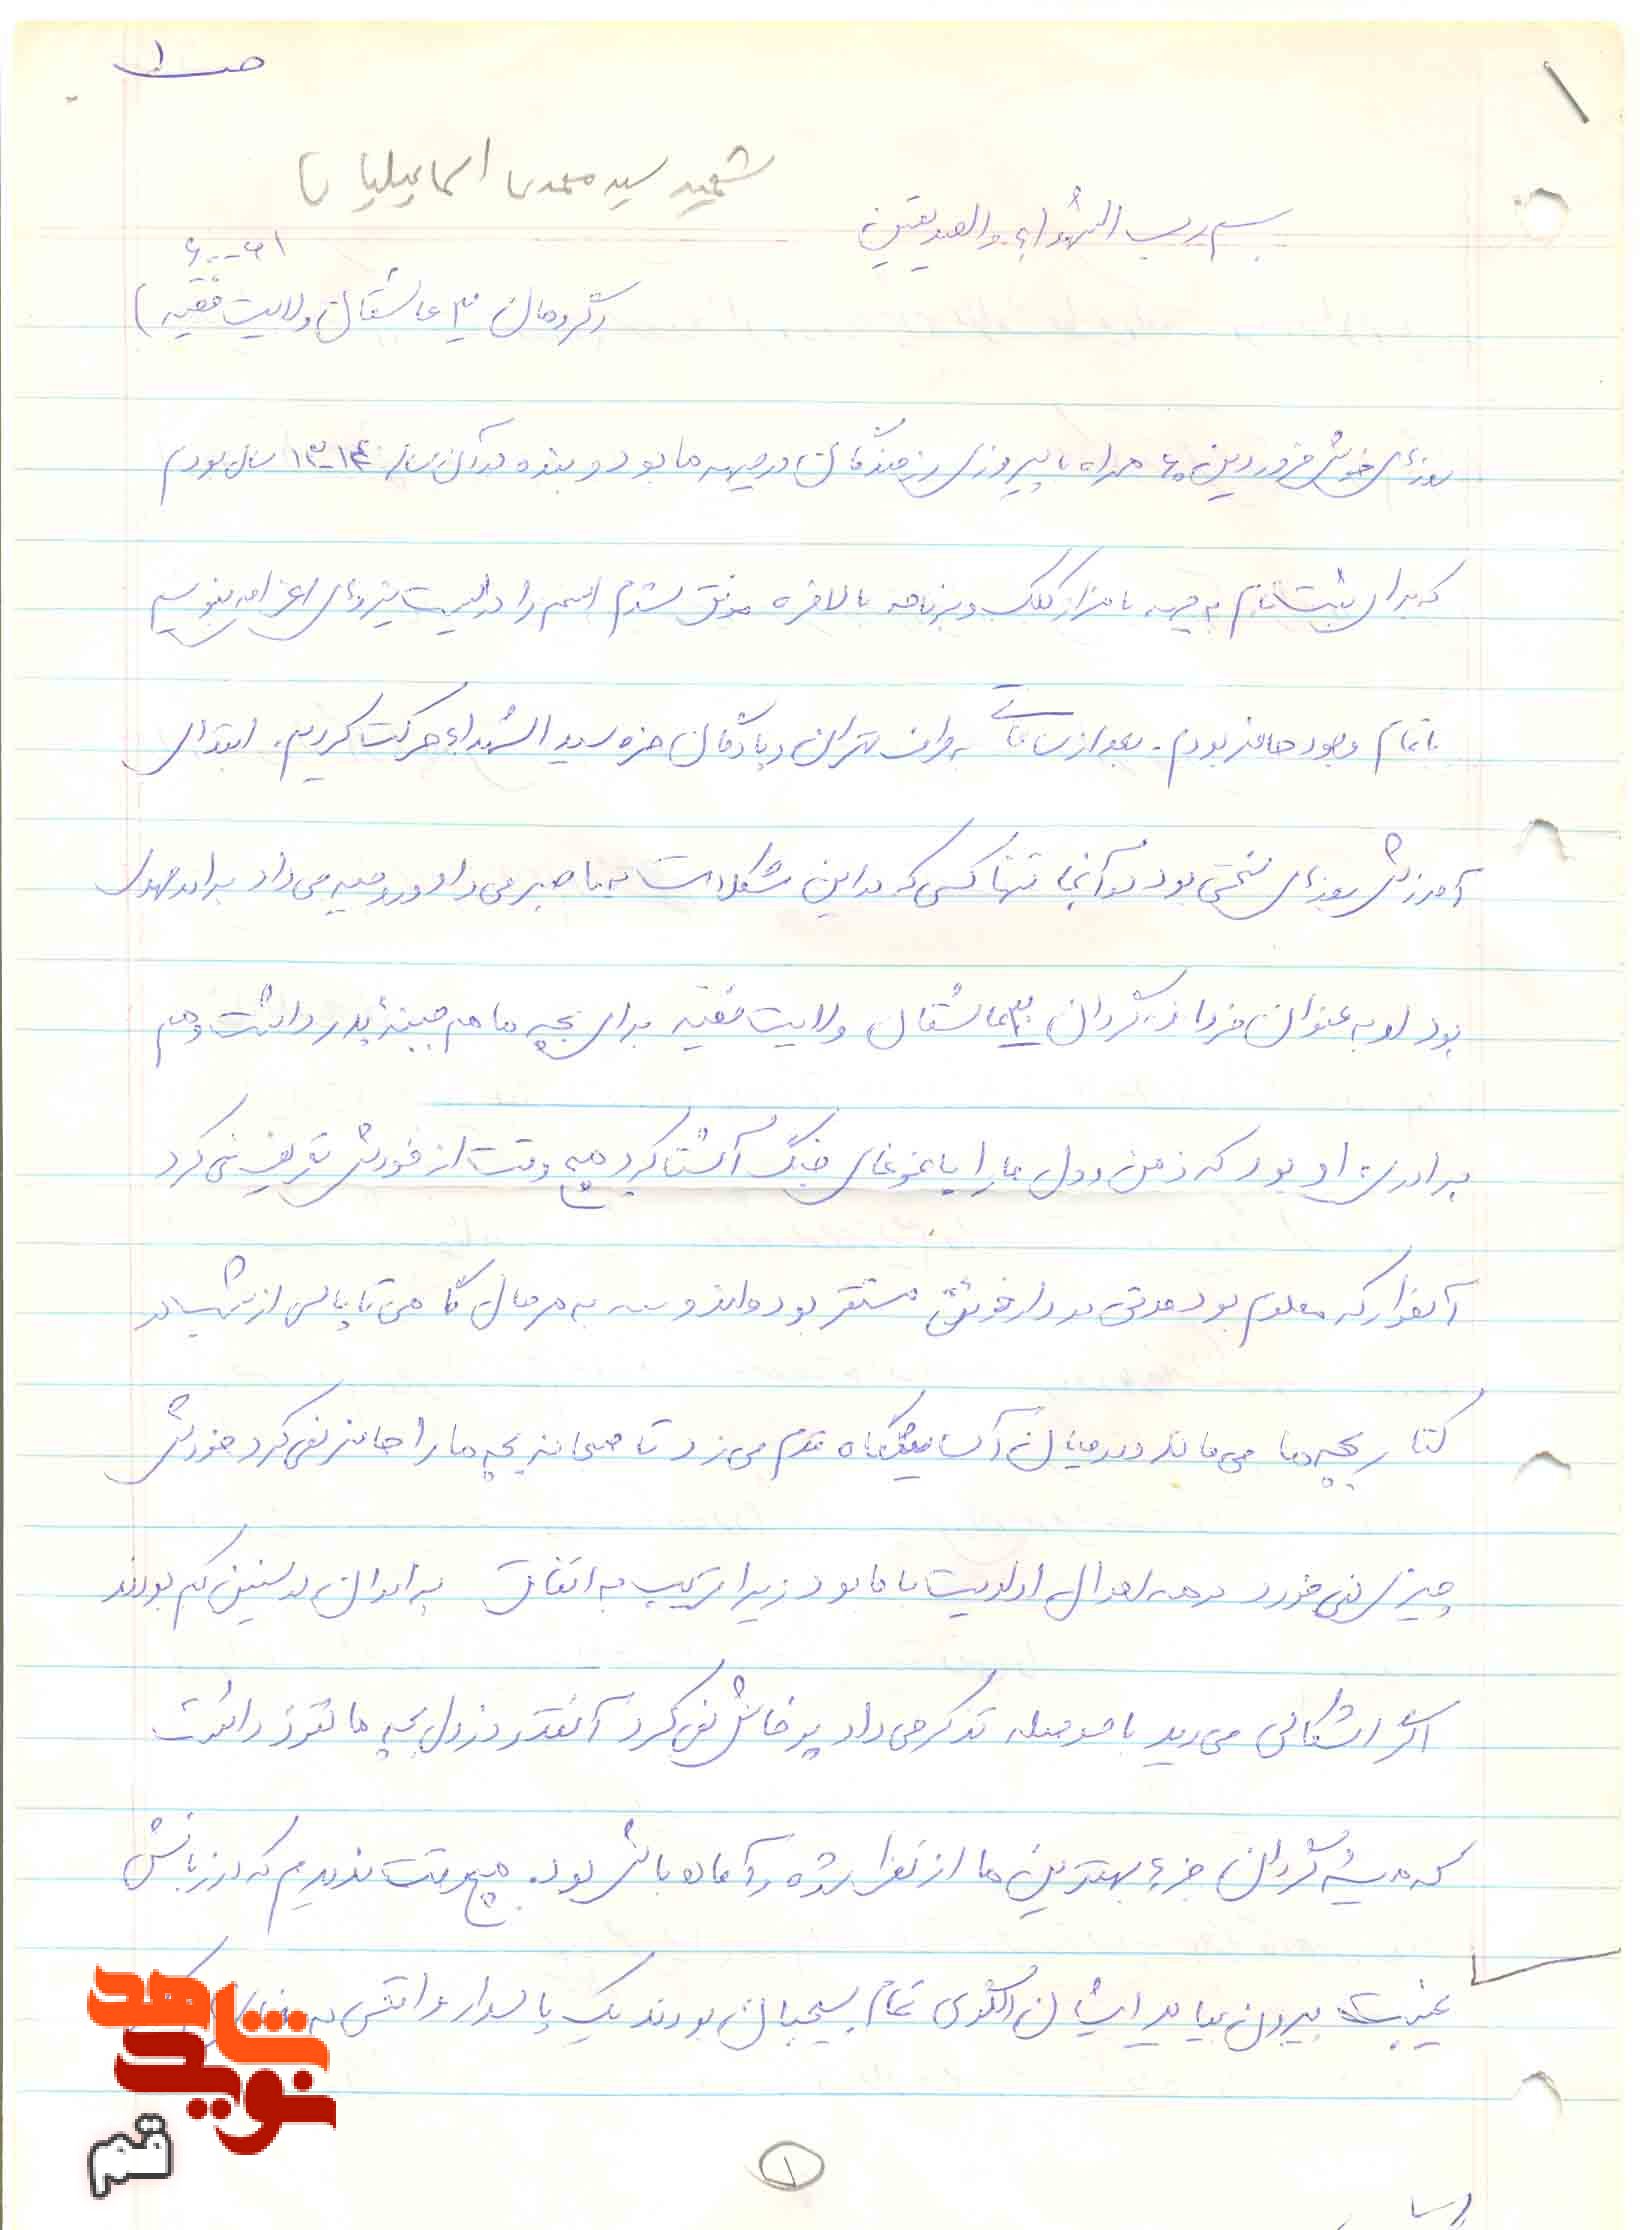 ص ۱
۱
شهید سید مهدی اسماعیلیان
بسم رب الشهداء والصدیقین
۶۰-۶۱
(گردان ۳ عاشقان ولایت فقیه)
روزهای خوش فروردین ۶۰ همراه با پیروزی رزمندگان در جبهه ها بود و بنده در آن سال ۱۳-۱۴ ساله بودم
که برای ثبت نام به جبهه با هزار کلک و برنامه بالاخره موفق شدم اسمم را در لیست نیروهای اعزام بنویسم
با تمام وجود حاضر بودم. بعد از ساعاتی به طرف تهران و پادگان حزه سید الشهداء حرکت کردیم. ابتدای
آموزش روزهای سختی بود در آنجا تنها کسی که در این مشکلات به ما صبر می داد و روحیه می داد برادر مهدی
بود او به عنوان فرمانده گردان ۳ عاشقان ولایت فقیه برای بچه ها هم جنبهٔ پدر داشت و هم
برادری او بود که ذهن و دل ما را با غوغای جنگ آشنا کرد هیچ وقت از خودش تعریف نمی کرد
آنطور که معلوم بود مدتی در دارخوئین مستقر بوده اند و به هر حال گاهی تا پاسی از شب در
کنار بچه ها می ماند و در میان آسایشگاه قدم می زد تا صبحانه بچه ها را حاضر نمی کرد خودش
چیزی نمی خورد در همه احوال اولویت با ما بود زیرا قریب به اتفاق برادران در سنین کم بودند
اگر اشکالی می دید با حوصله تذکر می داد پرخاش نمی کرد آنقدر در دل بچه ها نفوذ داشت
که همیشه گردان جزء بهترین ها از نظر و آماده باش بود. هیچ وقت ندیدم که در زبانش
غیبت بیرون بیاید ایشان الگوی تمام بسیجیان بودند یک پاسدار واقعی به معنای
۱
شاهد
نوید
قم